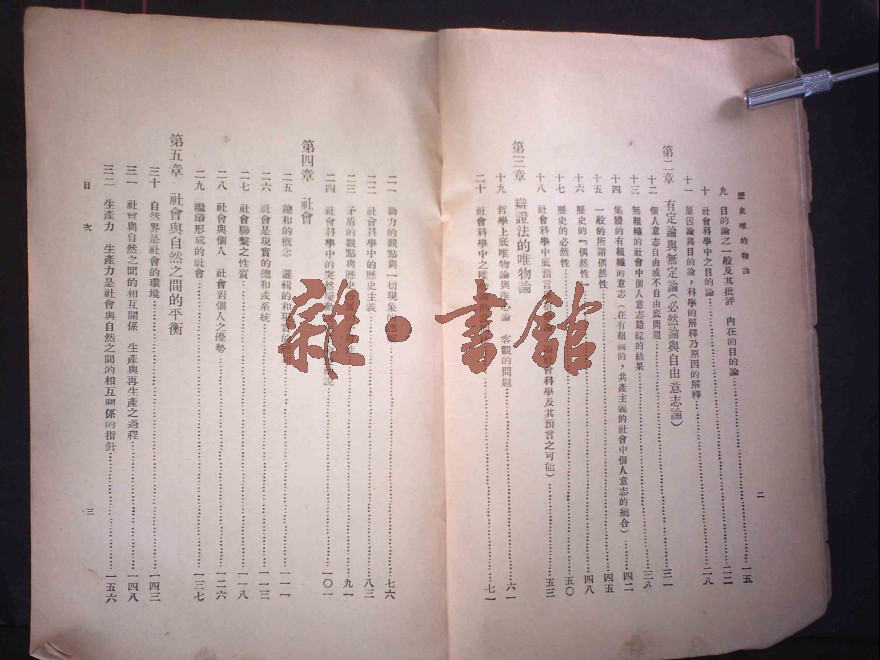 歷史唯物論
二
九 目的論之一般及其批評 內在的目的論……一五
十 社會科學中之目的論……二二
十一 原因論與目的論，科學的解釋乃原因的解釋……二八
第二章 有定論與無定論（必然論與自由意志論）……三一
十二 個人意志自由或不自由底問題
十三 無組織的社會中個人意志錯綜的結果……三八
十四 集體的有組織的意志（在有組織的，共產主義的社會中個人意志的揓合）……四二
十五 一般的所謂偶然性……四五
十六 歷史的『偶然性』……四八
十七 歷史的必然性……五〇
十八 社會科學中底預言 社會科學及其預言之可能）……五三
第三章 辯證法的唯物論
十九 哲學上底唯物論與唯心論 客觀的問題……六一
二十 社會科學中之唯物論的……七一
二一 動力的觀點與一切現象……七六
二二 社會科學中的歷史主義……八三
二三 矛盾的觀點與歷史……九一
二四 社會科學中的突然變動……一〇一
第四章 社會
二五 總和的概念 邏輯的和現實的……一一一
二六 社會是現實的總和或系統……一一三
二七 社會聯繫之性質……一一八
二八 社會與個人 社會對個人之優勢……一二六
二九 形成的社會……一三七
第五章 社會與自然之間的平衡
三十 自然界是社會的環境……一四三
三一 社會與自然之間的相互關係 生產與再生產之過程……一四八
三二 生產力 生產力是社會與自然之間的相互關係的指針……一五六
目次
三
雜·書館